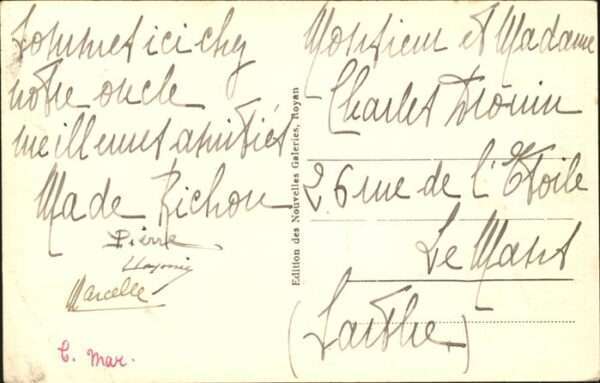 Sommes ici chez
notre oncle
meilleures amitiés
Made Richou
Pierre
Marcelle
C. Mar.
Edition des Nouvelles Galeries, Royan
Monsieur et Madame
Charles Drouin
26 rue de l'Etoile
Le Mans
(Sarthe)